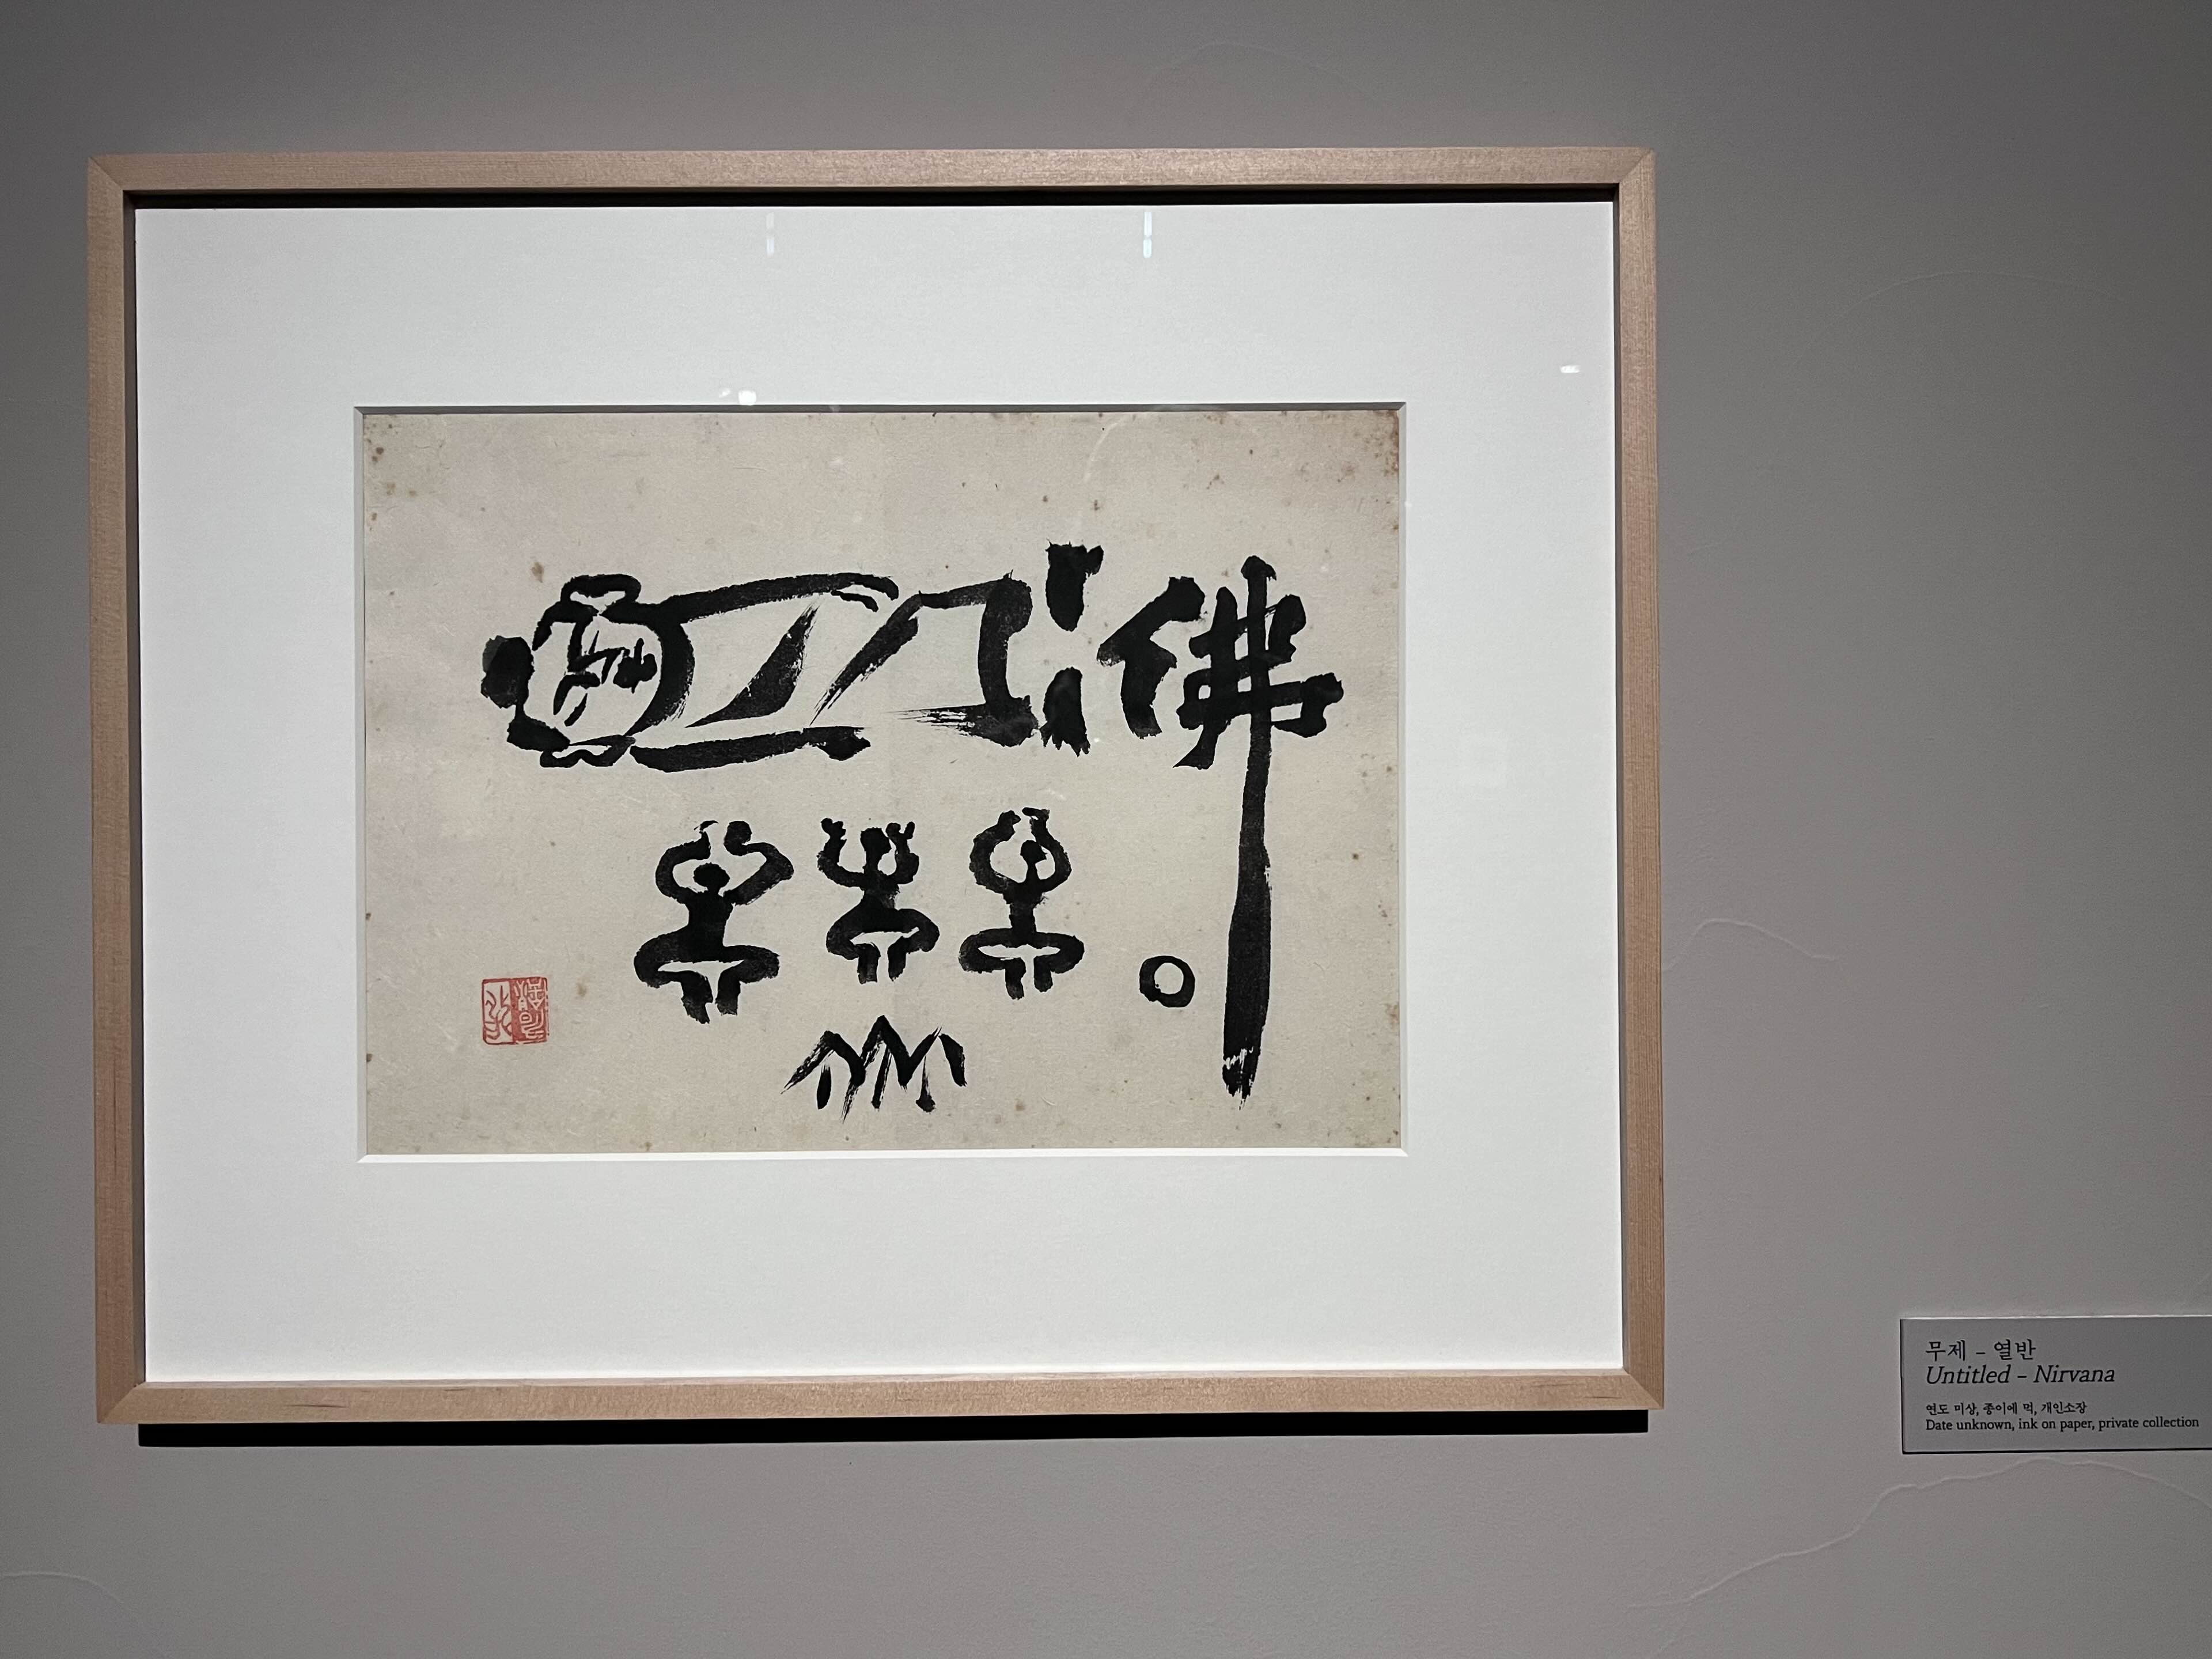 佛
무제 – 열반
Untitled – Nirvana
연도 미상, 종이에 먹, 개인소장
Date unknown, ink on paper, private collection